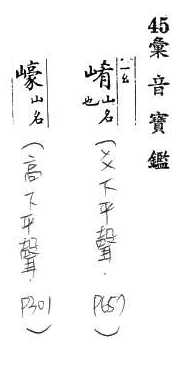 45 彙音寶鑑
崤 山名也 (爻下平聲. P657)
㠙 山名 (高下平聲. P301)